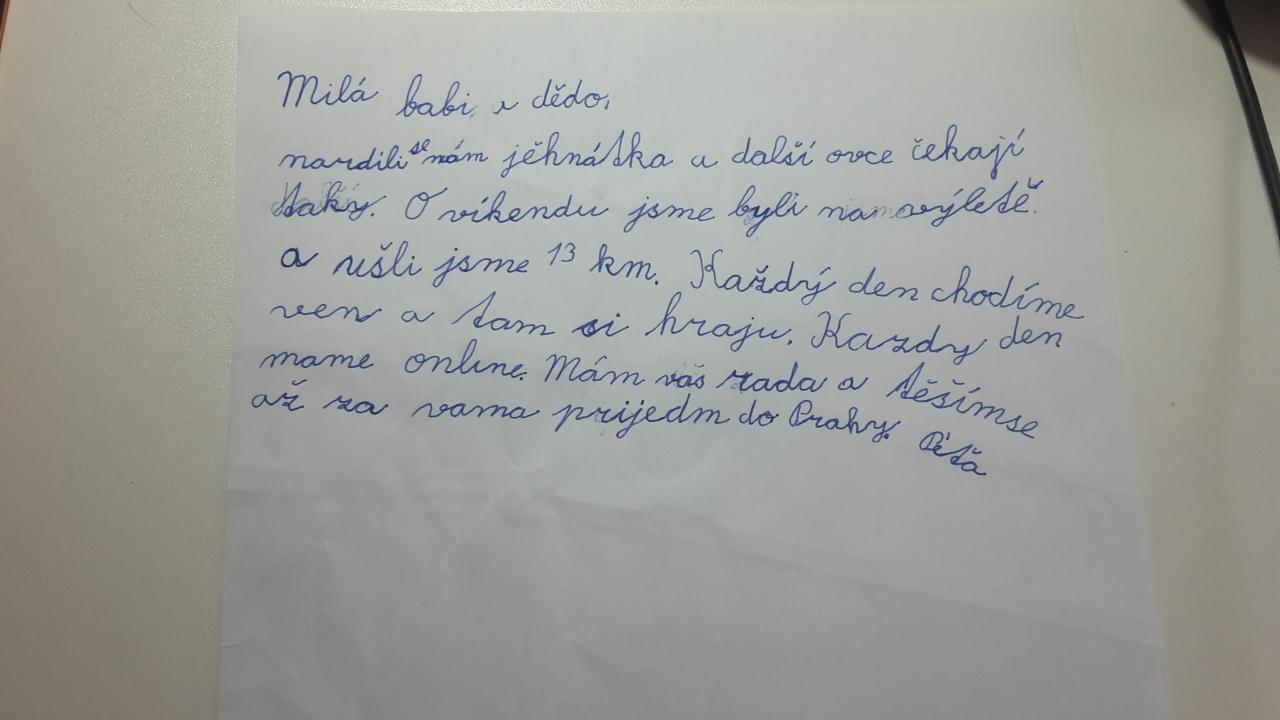 Milá babi a dědo,
nardili se nám jěhnátka a další ovce čekají
taky. O víkendu jsme byli na výletě.
a ušli jsme 13 km. Každý den chodíme
ven a tam si hraju. Kazdy den
mame online. Mám vás rada a těšímse
až za vama prijedm do Prahy. Péťa